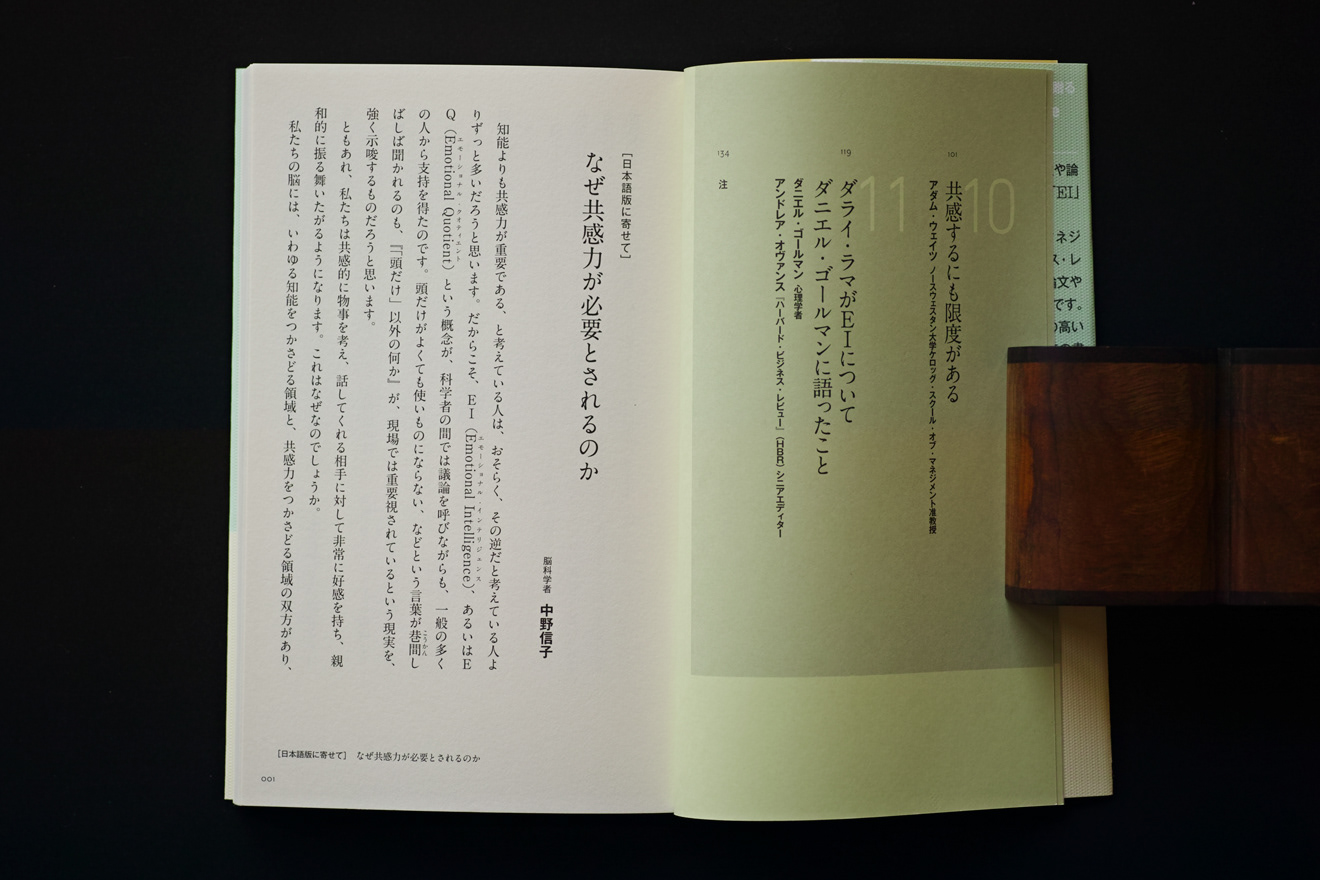 10
共感するにも限度がある
101
アダム・ウェイツ ノースウェスタン大学ケロッグ・スクール・オブ・マネジメント准教授
11
ダライ・ラマがEIについて
ダニエル・ゴールマンに語ったこと
119
ダニエル・ゴールマン 心理学者
アンドレア・オヴァンス 『ハーバード・ビジネス・レビュー』(HBR)シニアエディター
注
134
[日本語版に寄せて]
なぜ共感力が必要とされるのか
脳科学者 中野信子
知能よりも共感力が重要である、と考えている人は、おそらく、その逆だと考えている人よ
りずっと多いだろうと思います。だからこそ、EI(Emotional Intelligence)、あるいはE
エモーショナル・インテリジェンス
Q(Emotional Quotient)という概念が、科学者の間では議論を呼びながらも、一般の多く
エモーショナル・クオティエント
の人から支持を得たのです。頭だけがよくても使いものにならない、などという言葉が巷間し
こうかん
ばしば聞かれるのも、『「頭だけ」以外の何か』が、現場では重要視されているという現実を、
強く示唆するものだろうと思います。
ともあれ、私たちは共感的に物事を考え、話してくれる相手に対して非常に好感を持ち、親
和的に振る舞いたがるようになります。これはなぜなのでしょうか。
私たちの脳には、いわゆる知能をつかさどる領域と、共感力をつかさどる領域の双方があり、
[日本語版に寄せて] なぜ共感力が必要とされるのか
001
や論
「EI」
ネジ
ス・レ
論文や
です。
の高い